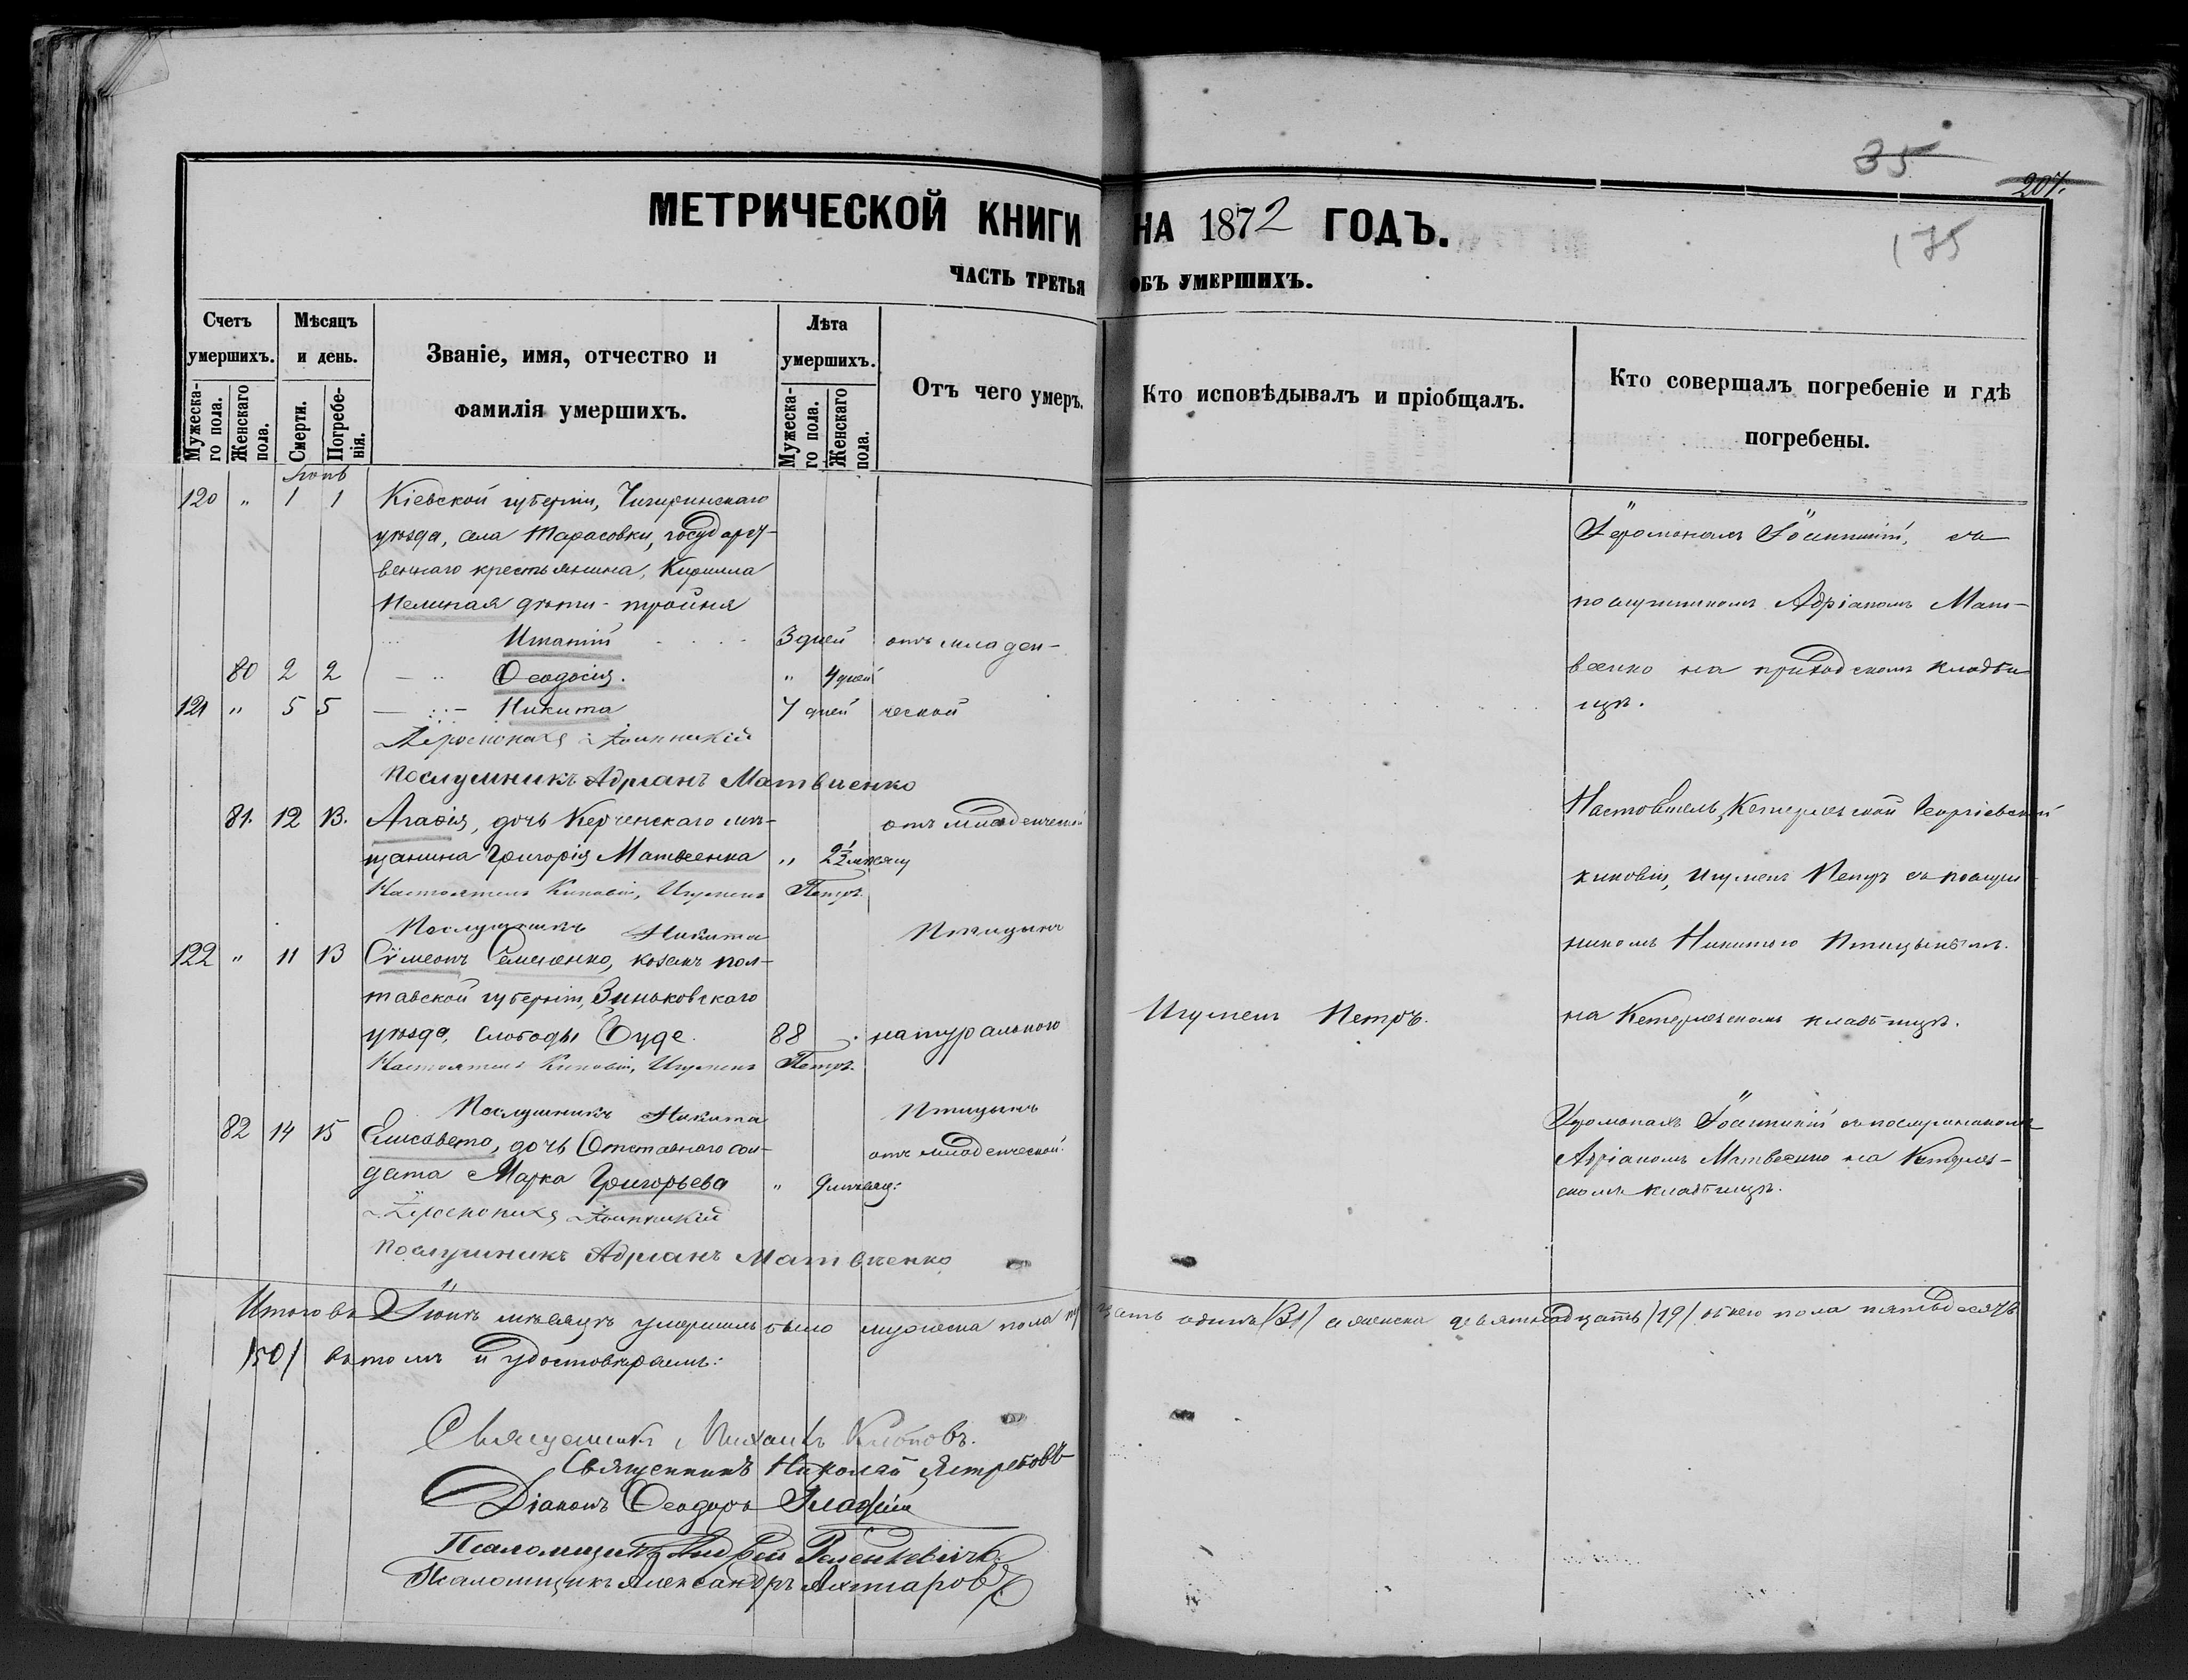 35
207.
МЕТРИЧЕСКОЙ КНИГИ НА 1872 ГОДЪ.
175
ЧАСТЬ ТРЕТЬЯ ОБЪ УМЕРШИХЪ.
Счетъ умершихъ.
Мужескаго пола.
Женскаго пола.
Мѣсяцъ и день.
Смерти.
Погребенія.
Званіе, имя, отчество и
фамилія умершихъ.
Лѣта умершихъ.
Мужескаго пола.
Женскаго пола.
Отъ чего умеръ.
Кто исповѣдывалъ и пріобщалъ.
Кто совершалъ погребеніе и гдѣ
погребены.
Іюнь
120 " 1 1 Кіевской губерніи, Чигиринскаго
уѣзда, села Тарасовки, государст-
веннаго крестьянина, Кирилла
дѣти - тройня
3 дней отъ младен-
80 2 2 Ѳеодосія. " 4 дней
121 " 5 5 Никита 7 дней ческой
Іеромонахъ Іоанникій
Послушникъ Адріанъ Матвиенко
Іеромонахъ Іоанникій, съ
послушникомъ Адріаномъ Мат-
веенко на приходскомъ кладби-
щѣ.
81. 12 13. Агаѳія, дочь Керченскаго мѣ- отъ младенческой
щанина Григорія Матвеенка " 2½ мѣсяц
Настоятель Киновіи, Игуменъ Петръ.
Послушникъ Никита Птицынъ
Настоятель Катерлезской Георгіевской
киновіи, Игуменъ Петръ съ послуш
никомъ Никитою Птицынымъ.
122 " 11 13 Сѵмеонъ Семененко, козакъ Пол-
тавской губерніи, Зиньковскаго
уѣзда, слободы Буде. 88 . натурального
Игуменъ Петръ.
на Катерлезскомъ кладбищѣ.
Настоятель Киновіи, Игуменъ Петръ.
Послушникъ Никита Птицынъ
82 14 15 Елисавета, дочь Отставного сол- отъ младенческой.
дата Марка Григорьева " 9 мѣсяц:
Іеромонахъ Іоанникій
Послушникъ Адріанъ Матвиенко
Іеромонахъ Іоанникій съ послушникомъ
Адріаномъ Матвеенко на Катерлез-
скомъ кладбищѣ.
Итого въ Іюнѣ мѣсяцѣ умершихъ было мужеска пола тридцать одинъ /31/ а женска девятнадцать /19/ обоего пола пятьдесятъ
/50/ въ томъ и удостовѣряемъ:
Священникъ Михаилъ
Священникъ Николай Ястребовъ
Діаконъ Ѳеодоръ
Псаломщикъ Андрей
Псаломщикъ Александръ Ахтаровъ